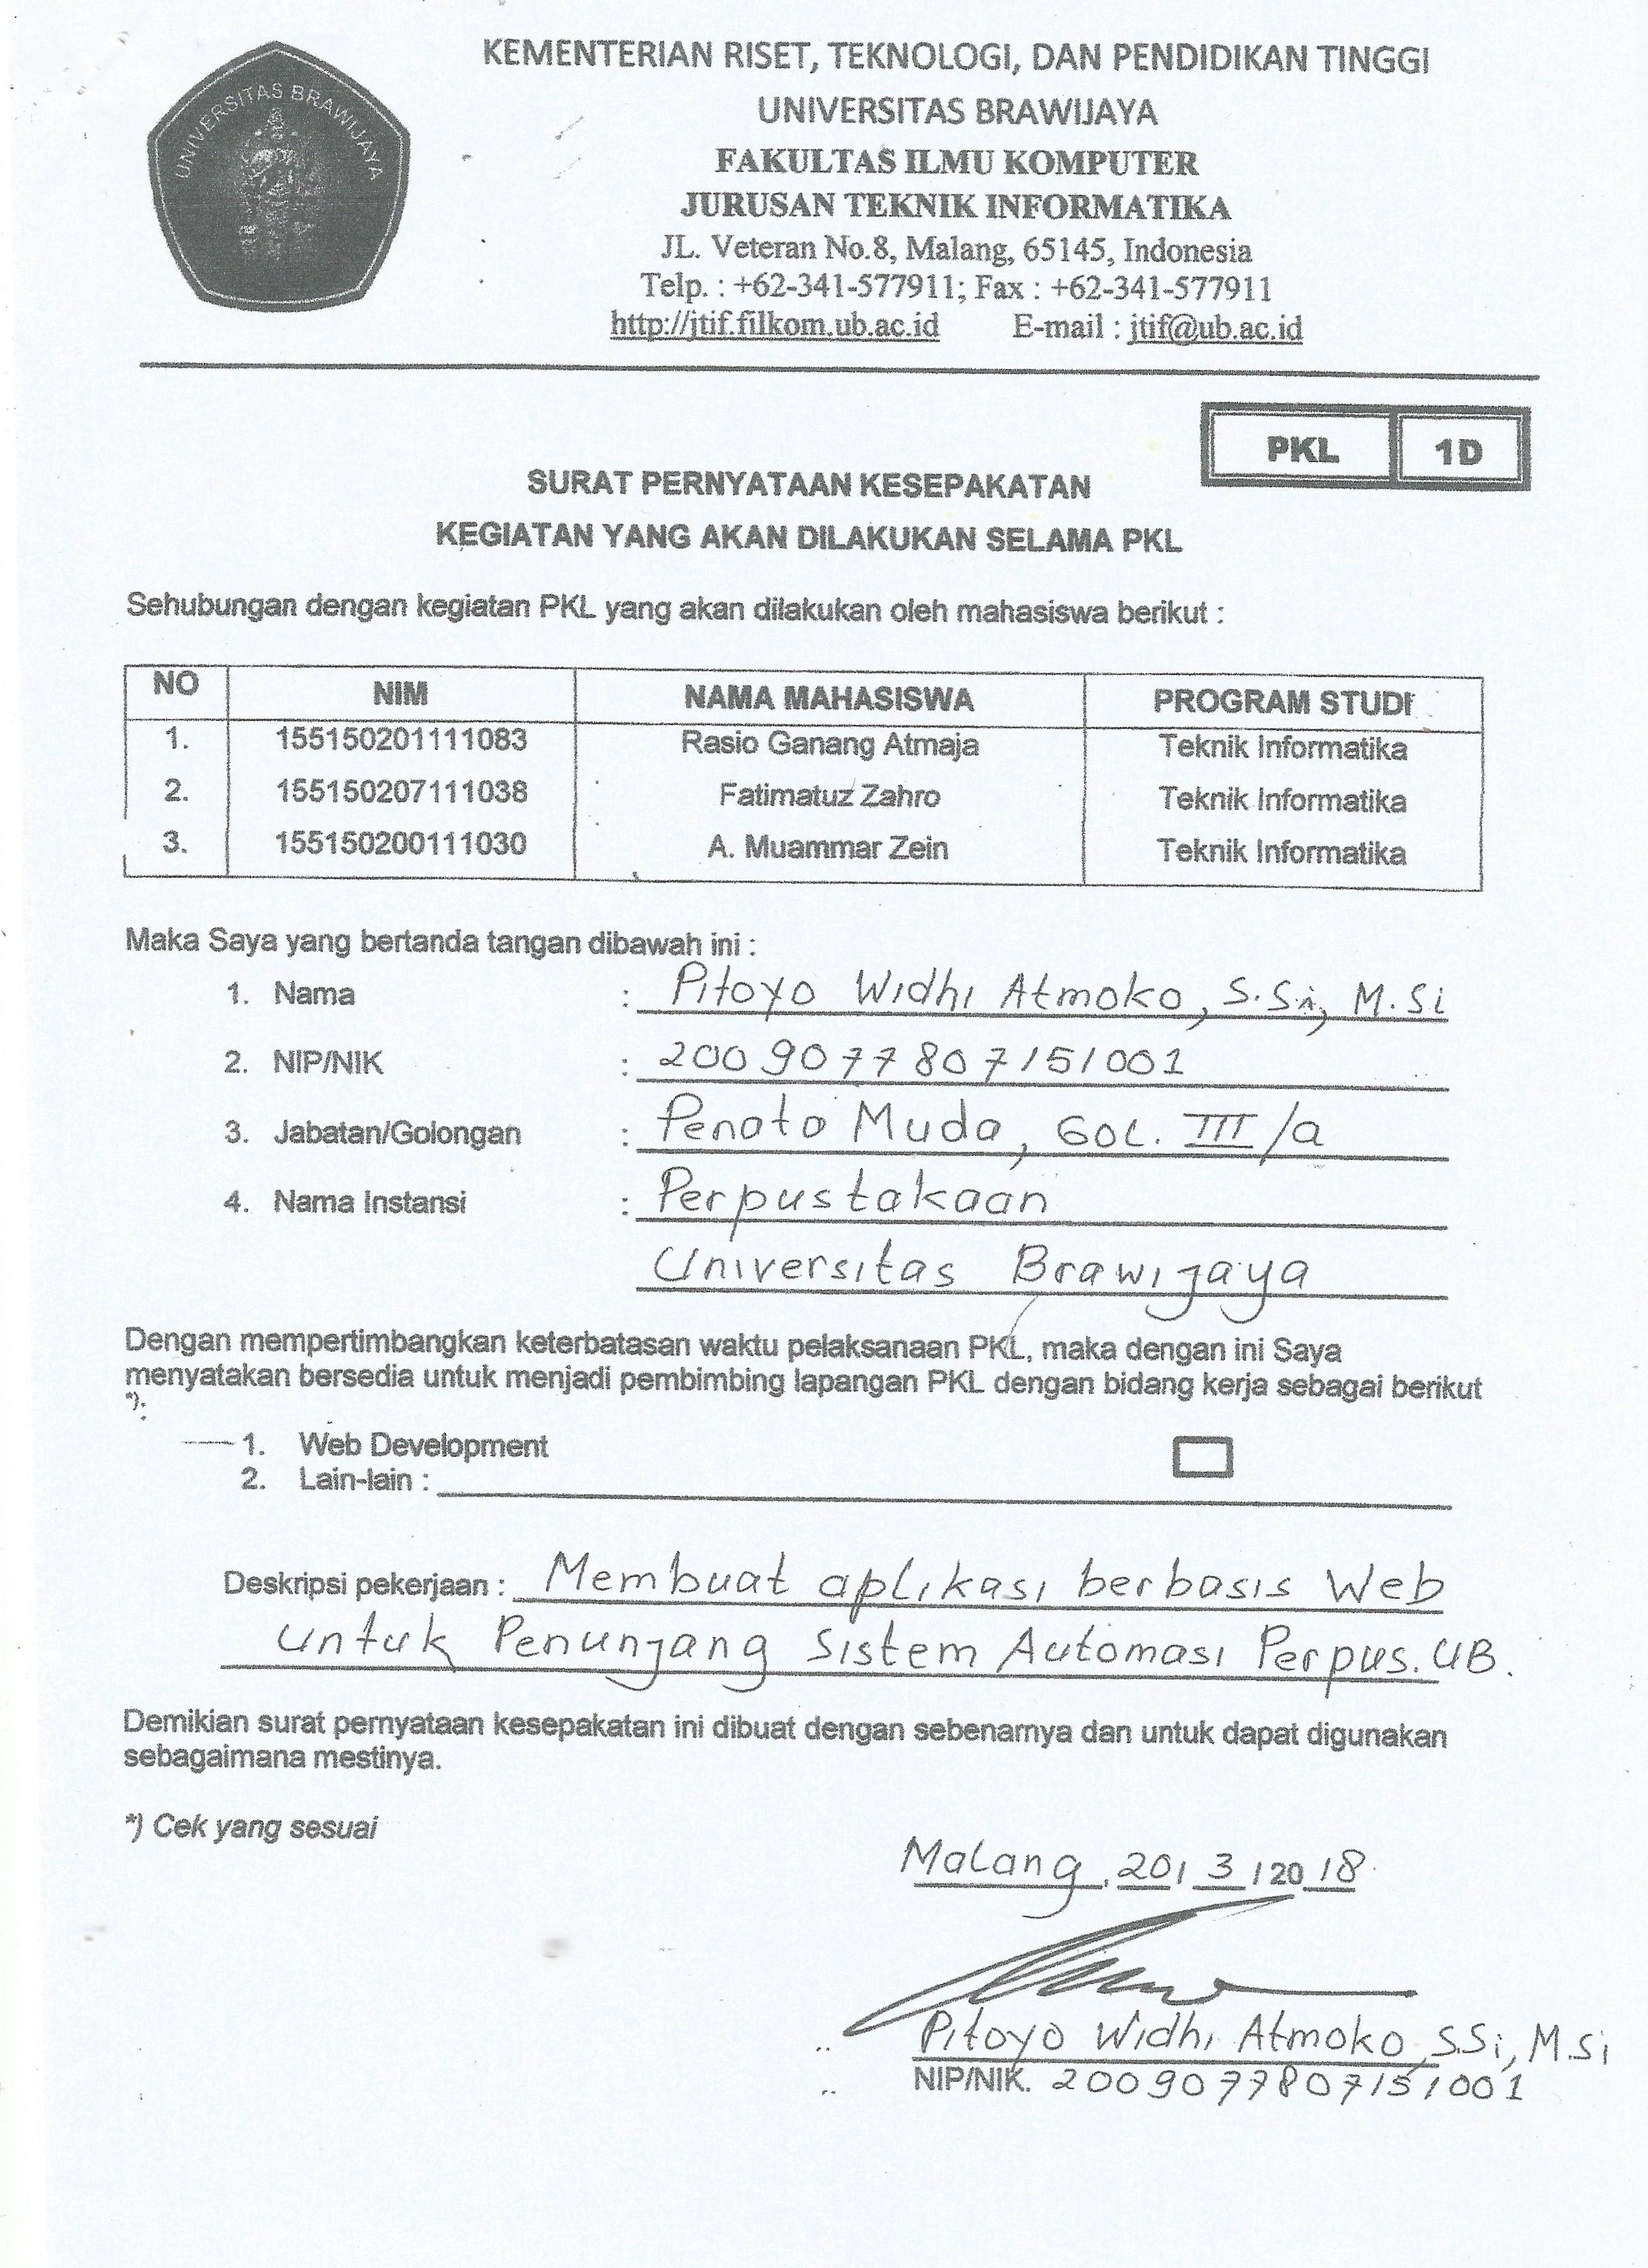 UNIVERSITAS BRAWIJAYA
KEMENTERIAN RISET, TEKNOLOGI, DAN PENDIDIKAN TINGGI
UNIVERSITAS BRAWIJAYA
FAKULTAS ILMU KOMPUTER
JURUSAN TEKNIK INFORMATIKA
JL. Veteran No.8, Malang, 65145, Indonesia
Telp. : +62-341-577911; Fax : +62-341-577911
http://jtif.filkom.ub.ac.id E-mail : jtif@ub.ac.id
PKL 1D
SURAT PERNYATAAN KESEPAKATAN
KEGIATAN YANG AKAN DILAKUKAN SELAMA PKL
Sehubungan dengan kegiatan PKL yang akan dilakukan oleh mahasiswa berikut :
NO NIM NAMA MAHASISWA PROGRAM STUDI
1. 155150201111083 Rasio Ganang Atmaja Teknik Informatika
2. 155150207111038 Fatimatuz Zahro Teknik Informatika
3. 155150200111030 A. Muammar Zein Teknik Informatika
Maka Saya yang bertanda tangan dibawah ini :
1. Nama : Pitoyo Widhi Atmoko, S.Si, M.Si
2. NIP/NIK : 2009077807151001
3. Jabatan/Golongan : Penata Muda, Gol. III/a
4. Nama Instansi : Perpustakaan
Universitas Brawijaya
Dengan mempertimbangkan keterbatasan waktu pelaksanaan PKL, maka dengan ini Saya
menyatakan bersedia untuk menjadi pembimbing lapangan PKL dengan bidang kerja sebagai berikut
*):
1. Web Development
2. Lain-lain :
Deskripsi pekerjaan : Membuat aplikasi berbasis Web
untuk Penunjang Sistem Automasi Perpus. UB.
Demikian surat pernyataan kesepakatan ini dibuat dengan sebenarnya dan untuk dapat digunakan
sebagaimana mestinya.
*) Cek yang sesuai
Malang, 20/3/2018
Pitoyo Widhi Atmoko, S.Si, M.Si
NIP/NIK. 2009077807151001